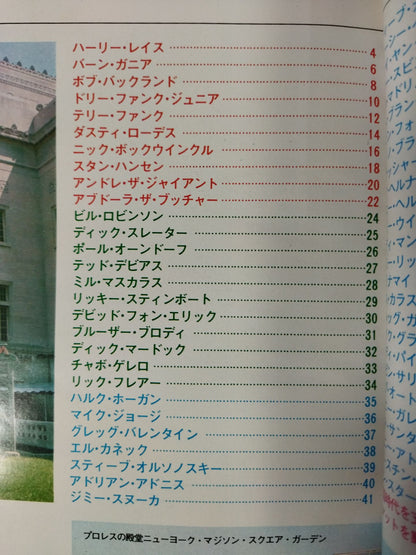 ハーリー・レイス 4
バーン・ガニア 6
ボブ・バックランド 8
ドリー・ファンク・ジュニア 10
テリー・ファンク 12
ダスティ・ローデス 14
ニック・ボックウインクル 16
スタン・ハンセン 18
アンドレ・ザ・ジャイアント 20
アブドーラ・ザ・ブッチャー 22
ビル・ロビンソン 24
ディック・スレーター 25
ポール・オーンドーフ 26
テッド・デビアス 27
ミル・マスカラス 28
リッキー・スティンボート 29
デビッド・フォン・エリック 30
ブルーザー・ブロディ 31
ディック・マードック 32
チャボ・ゲレロ 33
リック・フレアー 34
ハルク・ホーガン 35
マイク・ジョージ 36
グレッグ・バレンタイン 37
エル・カネック 38
スティーブ・オルソノスキー 39
アドリアン・アドニス 40
ジミー・スヌーカ 41
プロレスの殿堂ニューヨーク・マジソン・スクエア・ガーデン